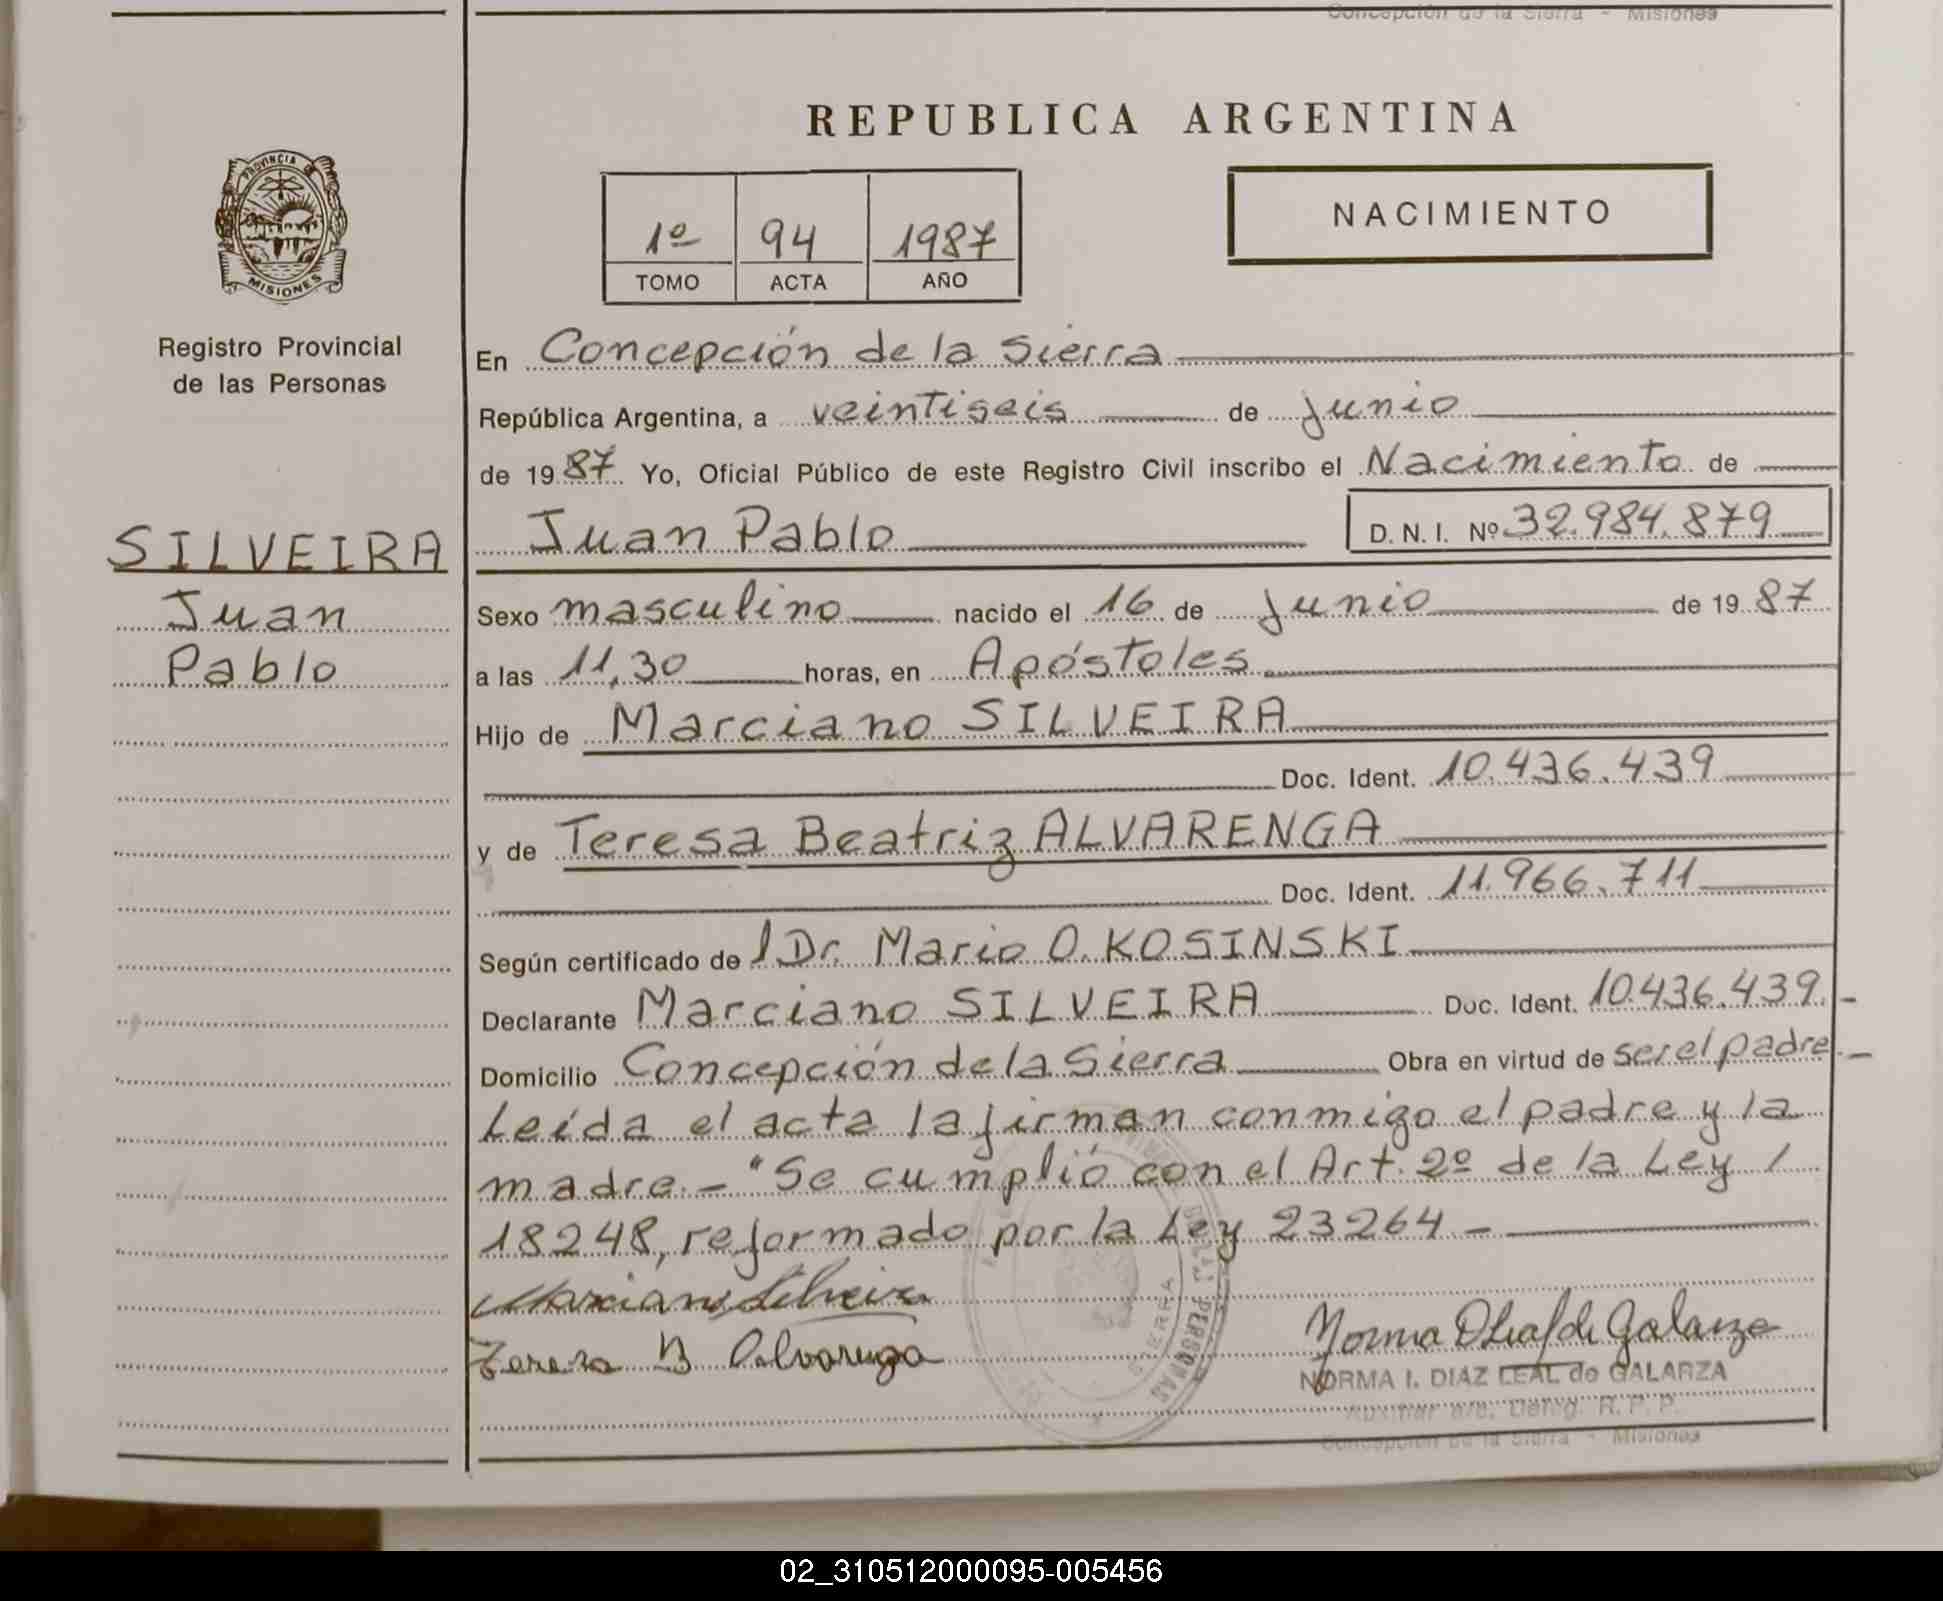 Concepción de la Sierra - Misiones
REPUBLICA ARGENTINA
PROVINCIA DE
MISIONES
Registro Provincial
de las Personas
1º 94 1987
TOMO ACTA AÑO
NACIMIENTO
En Concepción de la Sierra
República Argentina, a veintiseis de junio
de 1987 Yo, Oficial Público de este Registro Civil inscribo el Nacimiento de
SILVEIRA
Juan
Pablo
Juan Pablo D. N. I. Nº 32.984.879
Sexo masculino nacido el 16 de junio de 1987
a las 11,30 horas, en Apóstoles
Hijo de Marciano SILVEIRA
Doc. Ident. 10.436.439
y de Teresa Beatriz ALVARENGA
Doc. Ident. 11.966.711
Según certificado de l Dr. Mario O. KOSINSKI
Declarante Marciano SILVEIRA Doc. Ident. 10.436.439.-
Domicilio Concepción de la Sierra Obra en virtud de ser el padre.-
Leída el acta la firman conmigo el padre y la
madre.- "Se cumplió con el Art. 2º de la Ley /
18248, reformado por la Ley 23264 -
Marciano Silveira
Teresa B Alvarenga
SIERRA
PERSONAS
Norma D Leal de Galarza
NORMA I. DIAZ LEAL de GALARZA
Auxiliar a/c. Deleg. R. P. P.
Concepción de la Sierra - Misiones
02_310512000095-005456